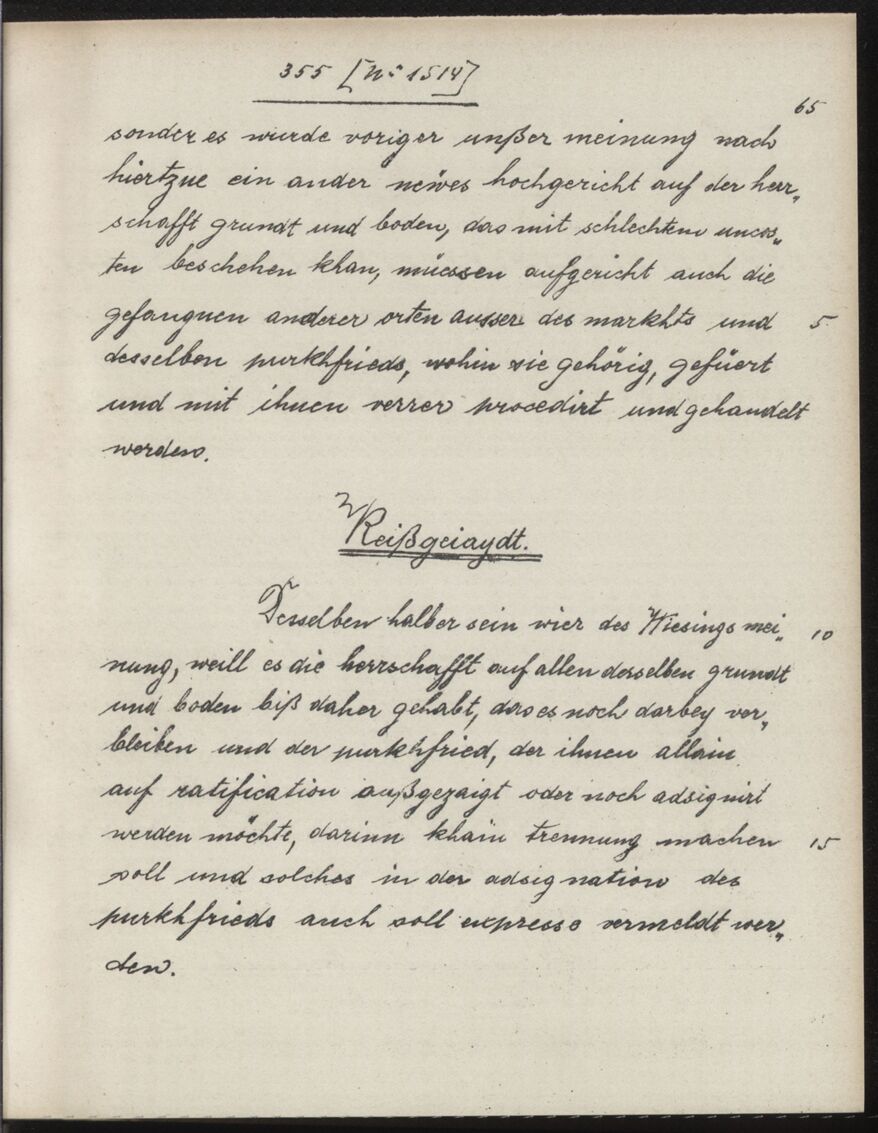 355 [No 1514]
65
sonder es wurde voriger unßer meinung nach
hiertzue ein ander newes hochgericht auf der herr„
schafft grundt und boden, das mit schlechtem uncos„
ten beschehen khan, müessen aufgericht auch die
gefangnen anderer orten ausser des markhts und 5
desselben purkhfrieds, wohin sie gehörig, gefüert
und mit ihnen verrer procedirt und gehandelt
werden.
Reißgeiaydt.
Desselben halber sein wier des Wiesings mei„ 10
nung, weill es die herrschafft auf allen desselben grundt
und boden biß daher gehabt, das es noch darbey ver„
bleiben und der purkhfried, der ihnen allain
auf ratification außgezaigt oder noch adsignirt
werden möchte, darinn khain trennung machen 15
soll und solches in der adsignation des
purkhfrieds auch soll expresse vermeldt wer„
den.